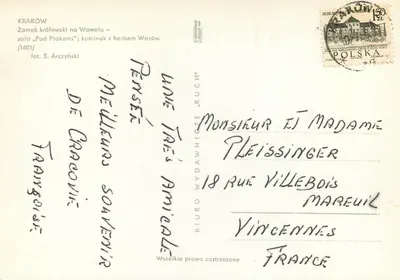 KRAKÓW
Zamek królewski na Wawelu –
sala „Pod Ptakami"; kominek z herbem Wazów
(1601)
fot. S. Arczyński
UNE TRÈS AMICALE
PENSÉE
MEILLEURS SOUVENIR
DE CRACOVIE
FRANÇOISE
BIURO WYDAWNICZE „RUCH"
KRAKÓW
POLSKA
MONSIEUR ET MADAME
PLEISSINGER
18 RUE VILLEBOIS
MAREUIL
VINCENNES
FRANCE
Wszelkie prawa zastrzeżone